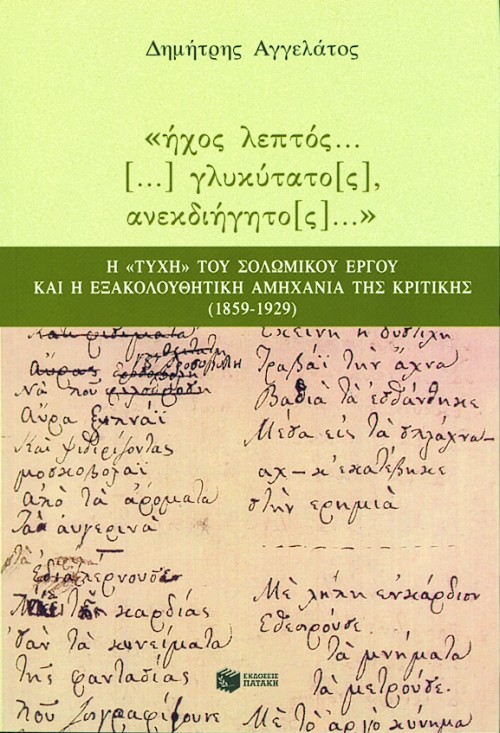 Δημήτρης Αγγελάτος
«ήχος λεπτός...
[...] γλυκύτατο[ς],
ανεκδιήγητο[ς]...»
Η «ΤΥΧΗ» ΤΟΥ ΣΟΛΩΜΙΚΟΥ ΕΡΓΟΥ
ΚΑΙ Η ΕΞΑΚΟΛΟΥΘΗΤΙΚΗ ΑΜΗΧΑΝΙΑ ΤΗΣ ΚΡΙΤΙΚΗΣ
(1859-1929)
Αὔρας
Νὰ ποῦ
Αὔρα ξυπνάϊ
Καὶ ψιθιρίζοντας
μοσκοβολάϊ
ἀπὸ τὰ ἀρόματα
Τὰ αυγερινὰ
καρδίας
σὰν τὰ κυνείματα
τῆς φαντασίας
ποῦ ζωγραφίζουνε
Ἐκείνη ἡ δυστιχη
Τραβάϊ τὴν ἄχνα
Βαθιὰ τὰ ἐσθάνθηκε
Μέσα εἰς τὰ σπλάχνα
αχ - κ' εκατέβηκε
στὴν ερημιὰ
Μὲ λήπη ενκάρδιον
Εθεορούσε
τὰ μνήματα
τὰ μετρούσε.
Μὲ τὸ ἀργὸ κύνημα
ΕΚΔΟΣΕΙΣ
ΠΑΤΑΚΗ